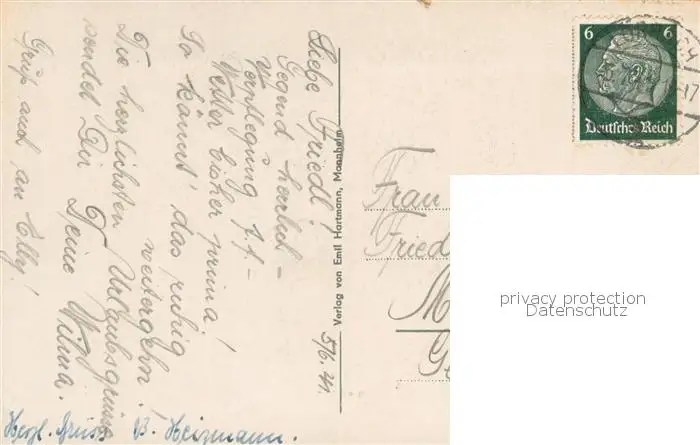 5/6. 41.
Liebe Friedl!
Gegend herrlich –
Verpflegung 1.1. –
Wetter bisher prima!
So könnt' das ruhig
weitergehn!
Die herzlichsten Urlaubsgrüsse
sendet Dir
Deine Wilma.
Gruß auch an Elly!
Herzl. Grüsse B. Heizmann.
Verlag von Emil Hartmann, Mannheim
6 6
Deutsches Reich
Frau
Fried
M
G
privacy protection
Datenschutz